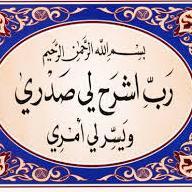 بسم الله الرحمن الرحيم
رب اشرح لي صدري
ويسر لي أمري